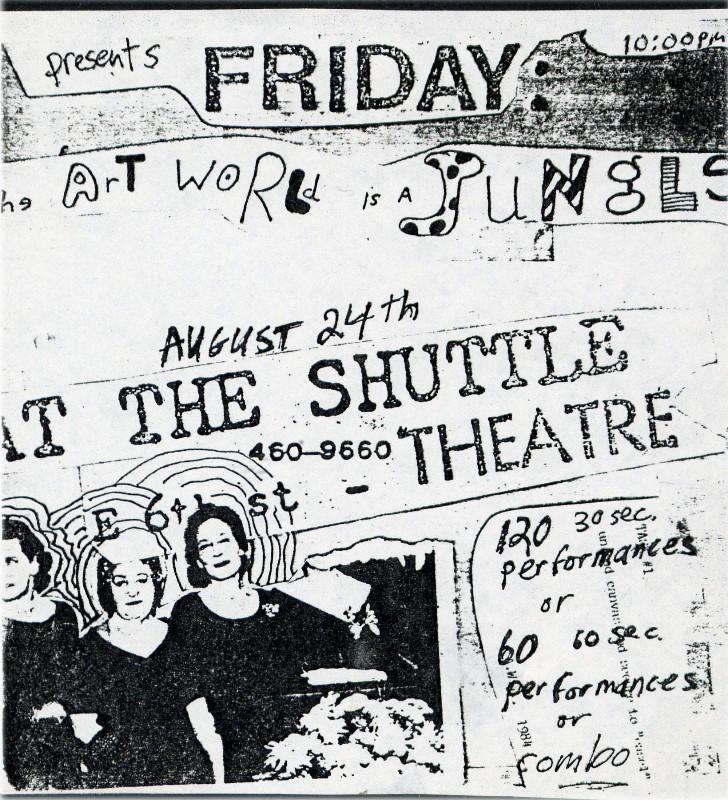 presents FRIDAY 10:00PM
he ArT WoRLd is A JuNgLS
AUGUST 24th
AT THE SHUTTLE
460-9660 THEATRE
E 6th st -
120 30 sec.
performances
or
60 60 sec.
performances
or
combo
1984